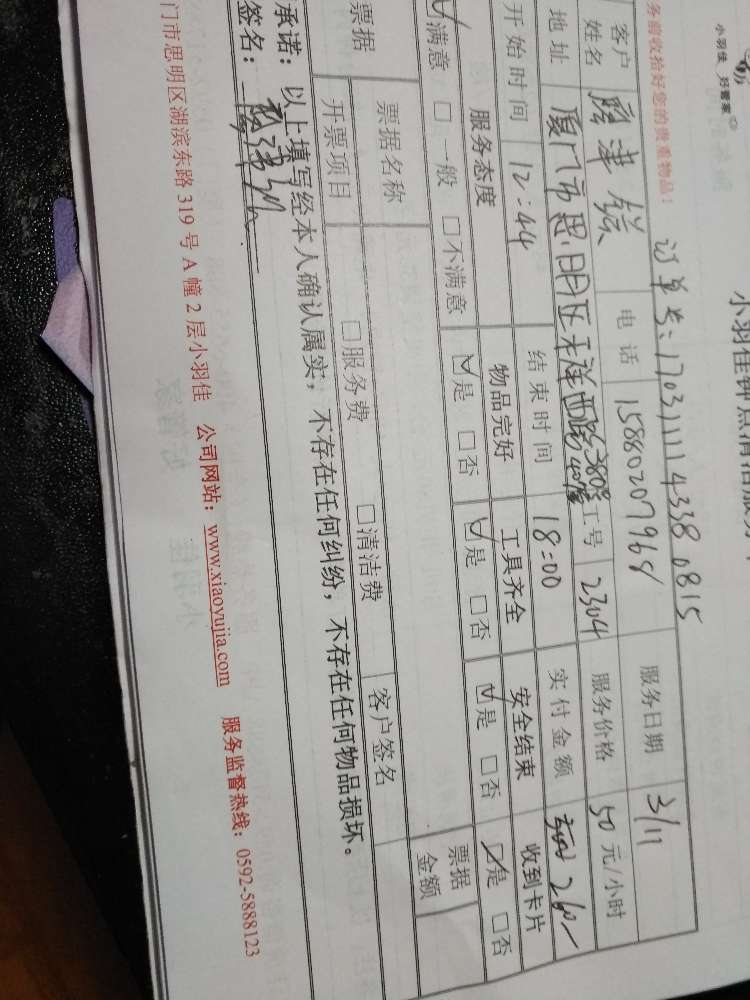 小羽佳 好管家
小羽佳钟点清洁服务
务前收拾好您的贵重物品！
订单号：17031111433 80815
客户姓名 电话 15880207968 服务日期 3/11
地址 厦门市思明区禾祥西路380号 工号 2304 服务价格 50元/小时
开始时间 12:44 结束时间 18:00 实付金额 260—
服务态度 物品完好 工具齐全 安全结束 收到卡片
☑满意 □一般 □不满意 ☑是 □否 ☑是 □否 ☑是 □否 ☑是 □否
票据 票据名称 客户签名 票据金额
开票项目 □服务费 □清洁费
承诺：以上填写经本人确认属实，不存在任何纠纷，不存在任何物品损坏。
签名：
门市思明区湖滨东路319号A幢2层小羽佳 公司网站：www.xiaoyujia.com 服务监督热线：0592-5888123